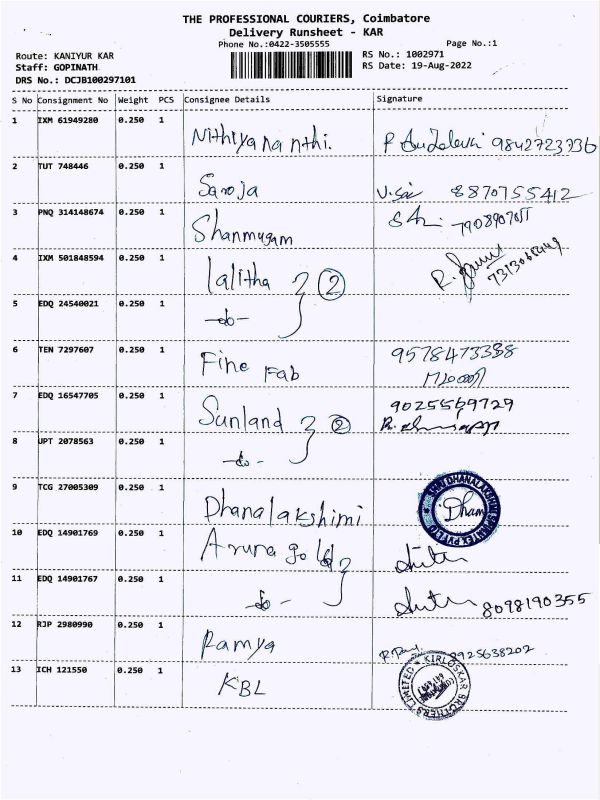 THE PROFESSIONAL COURIERS, Coimbatore
Delivery Runsheet - KAR
Phone No.:0422-3505555 Page No.:1
Route: KANIYUR KAR RS No.: 1002971
Staff: GOPINATH RS Date: 19-Aug-2022
DRS No.: DCJB100297101
S No Consignment No Weight PCS Consignee Details Signature
1 IXM 61949280 0.250 1 Nithiyananthi. 9842723736
2 TUT 748446 0.250 1 Saroja 8870755412
3 PNQ 314148674 0.250 1 Shanmugam
4 IXM 501848594 0.250 1 lalitha 2
5 EDQ 24540021 0.250 1 -do-
6 TEN 7297607 0.250 1 Fine Fab 9578473338
7 EDQ 16547705 0.250 1 Sunland 2 9025569729
8 UPT 2078563 0.250 1 -do-
9 TCG 27005309 0.250 1 Dhanalakshimi
10 EDQ 14901769 0.250 1 Aruna gold
11 EDQ 14901767 0.250 1 -do- 8098190355
12 RJP 2980990 0.250 1 Ramya 8925638202
13 ICH 121550 0.250 1 KBL KIRLOSKAR BROTHERS LIMITED